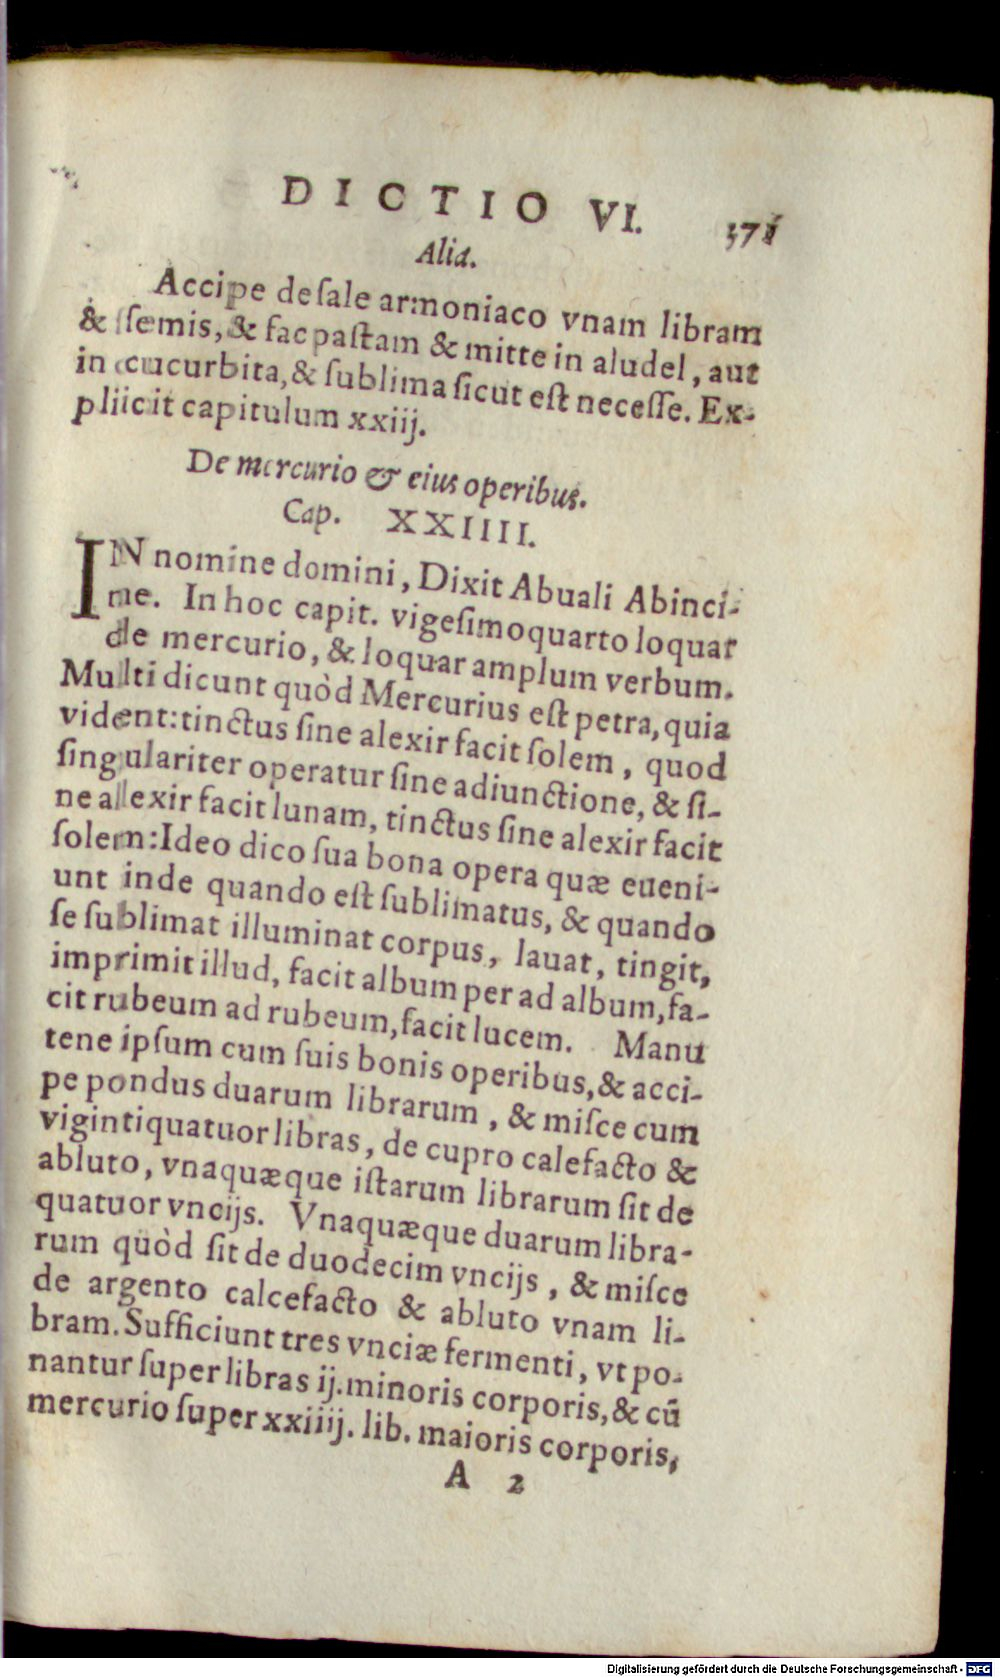 DICTIO VI. 371
Alia.
Accipe de ſale armoniaco vnam libram
& ſſemis, & fac paſtam & mitte in aludel, aut
in cucurbita, & ſublima ſicut eſt neceſſe. Ex-
pliicit capitulum xxiij.
De mercurio & eius operibus.
Cap. XXIIII.
IN nomine domini, Dixit Abuali Abinci-
ne. In hoc capit. vigeſimoquarto loquar
de mercurio, & loquar amplum verbum.
Multi dicunt quòd Mercurius eſt petra, quia
vident: tinctus ſine alexir facit ſolem, quod
ſingulariter operatur ſine adiunctione, & ſi-
ne allexir facit lunam, tinctus ſine alexir facit
ſolem: Ideo dico ſua bona opera quæ eueni-
unt inde quando eſt ſublimatus, & quando
ſe ſublimat illuminat corpus, lauat, tingit,
imprimit illud, facit album per ad album, fa-
cit rubeum ad rubeum, facit lucem. Manu
tene ipſum cum ſuis bonis operibus, & acci-
pe pondus duarum librarum, & miſce cum
vigintiquatuor libras, de cupro calefacto &
abluto, vnaquæque iſtarum librarum ſit de
quatuor vncijs. Vnaquæque duarum libra-
rum quòd ſit de duodecim vncijs, & miſce
de argento calcefacto & abluto vnam li-
bram. Sufficiunt tres vnciæ fermenti, vt po-
nantur ſuper libras ij. minoris corporis, & cū
mercurio ſuper xxiiij. lib. maioris corporis,
A 2
Digitalisierung gefördert durch die Deutsche Forschungsgemeinschaft - DFG